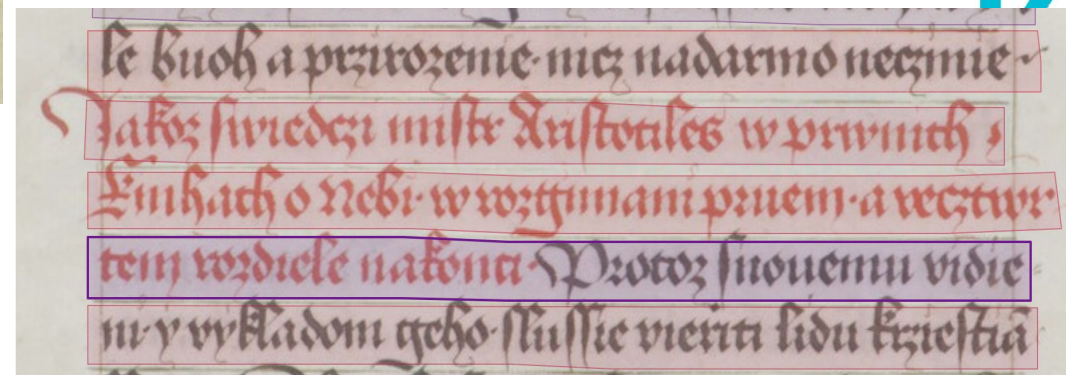 le buoh a przirozenie · nicz nadarmo neczinie ·
Jakoz swiedczi mistr Aristotiles w prwnich
knihach o Nebi · w rozgimani prwem · a wecztwr
tem rozdiele nakonci · Protoz snouemu vidie
ni · y vykladom geho · slussie vieriti lidu krziestiā